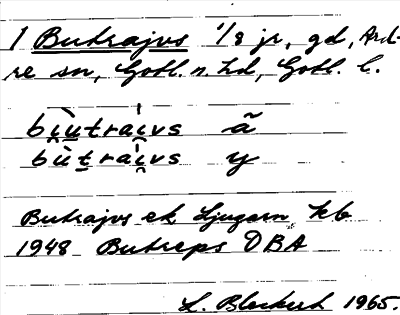 1 Butrajvs 1/8 jr, gd, Ard-
re sn, Gotl. n. hd, Gotl. l.
bi̯ùtrai̯vs ã
bi̯ùtrai̯vs y
Butrajvs ek Ljugarn kb
1948 Butreps DBA
L. Bleckert 1965.